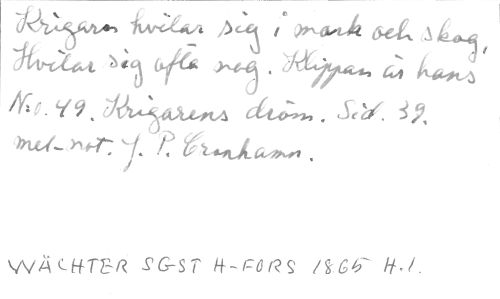 Krigarn hvilar sig i mark och skog,
Hvilar sig ofta nog. Klippan är hans
N:o. 49. Krigarens dröm. Sid. 39.
mel-not. J. P. Cronhamn.
WÄCHTER SGST H-FORS 1865 H.1.